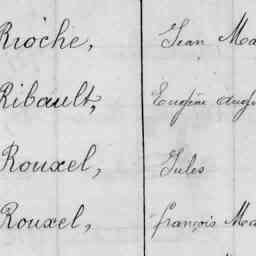 Rioche, Jean Ma
Ribault, Eugène Augu
Rouxel, Jules
Rouxel, François Ma